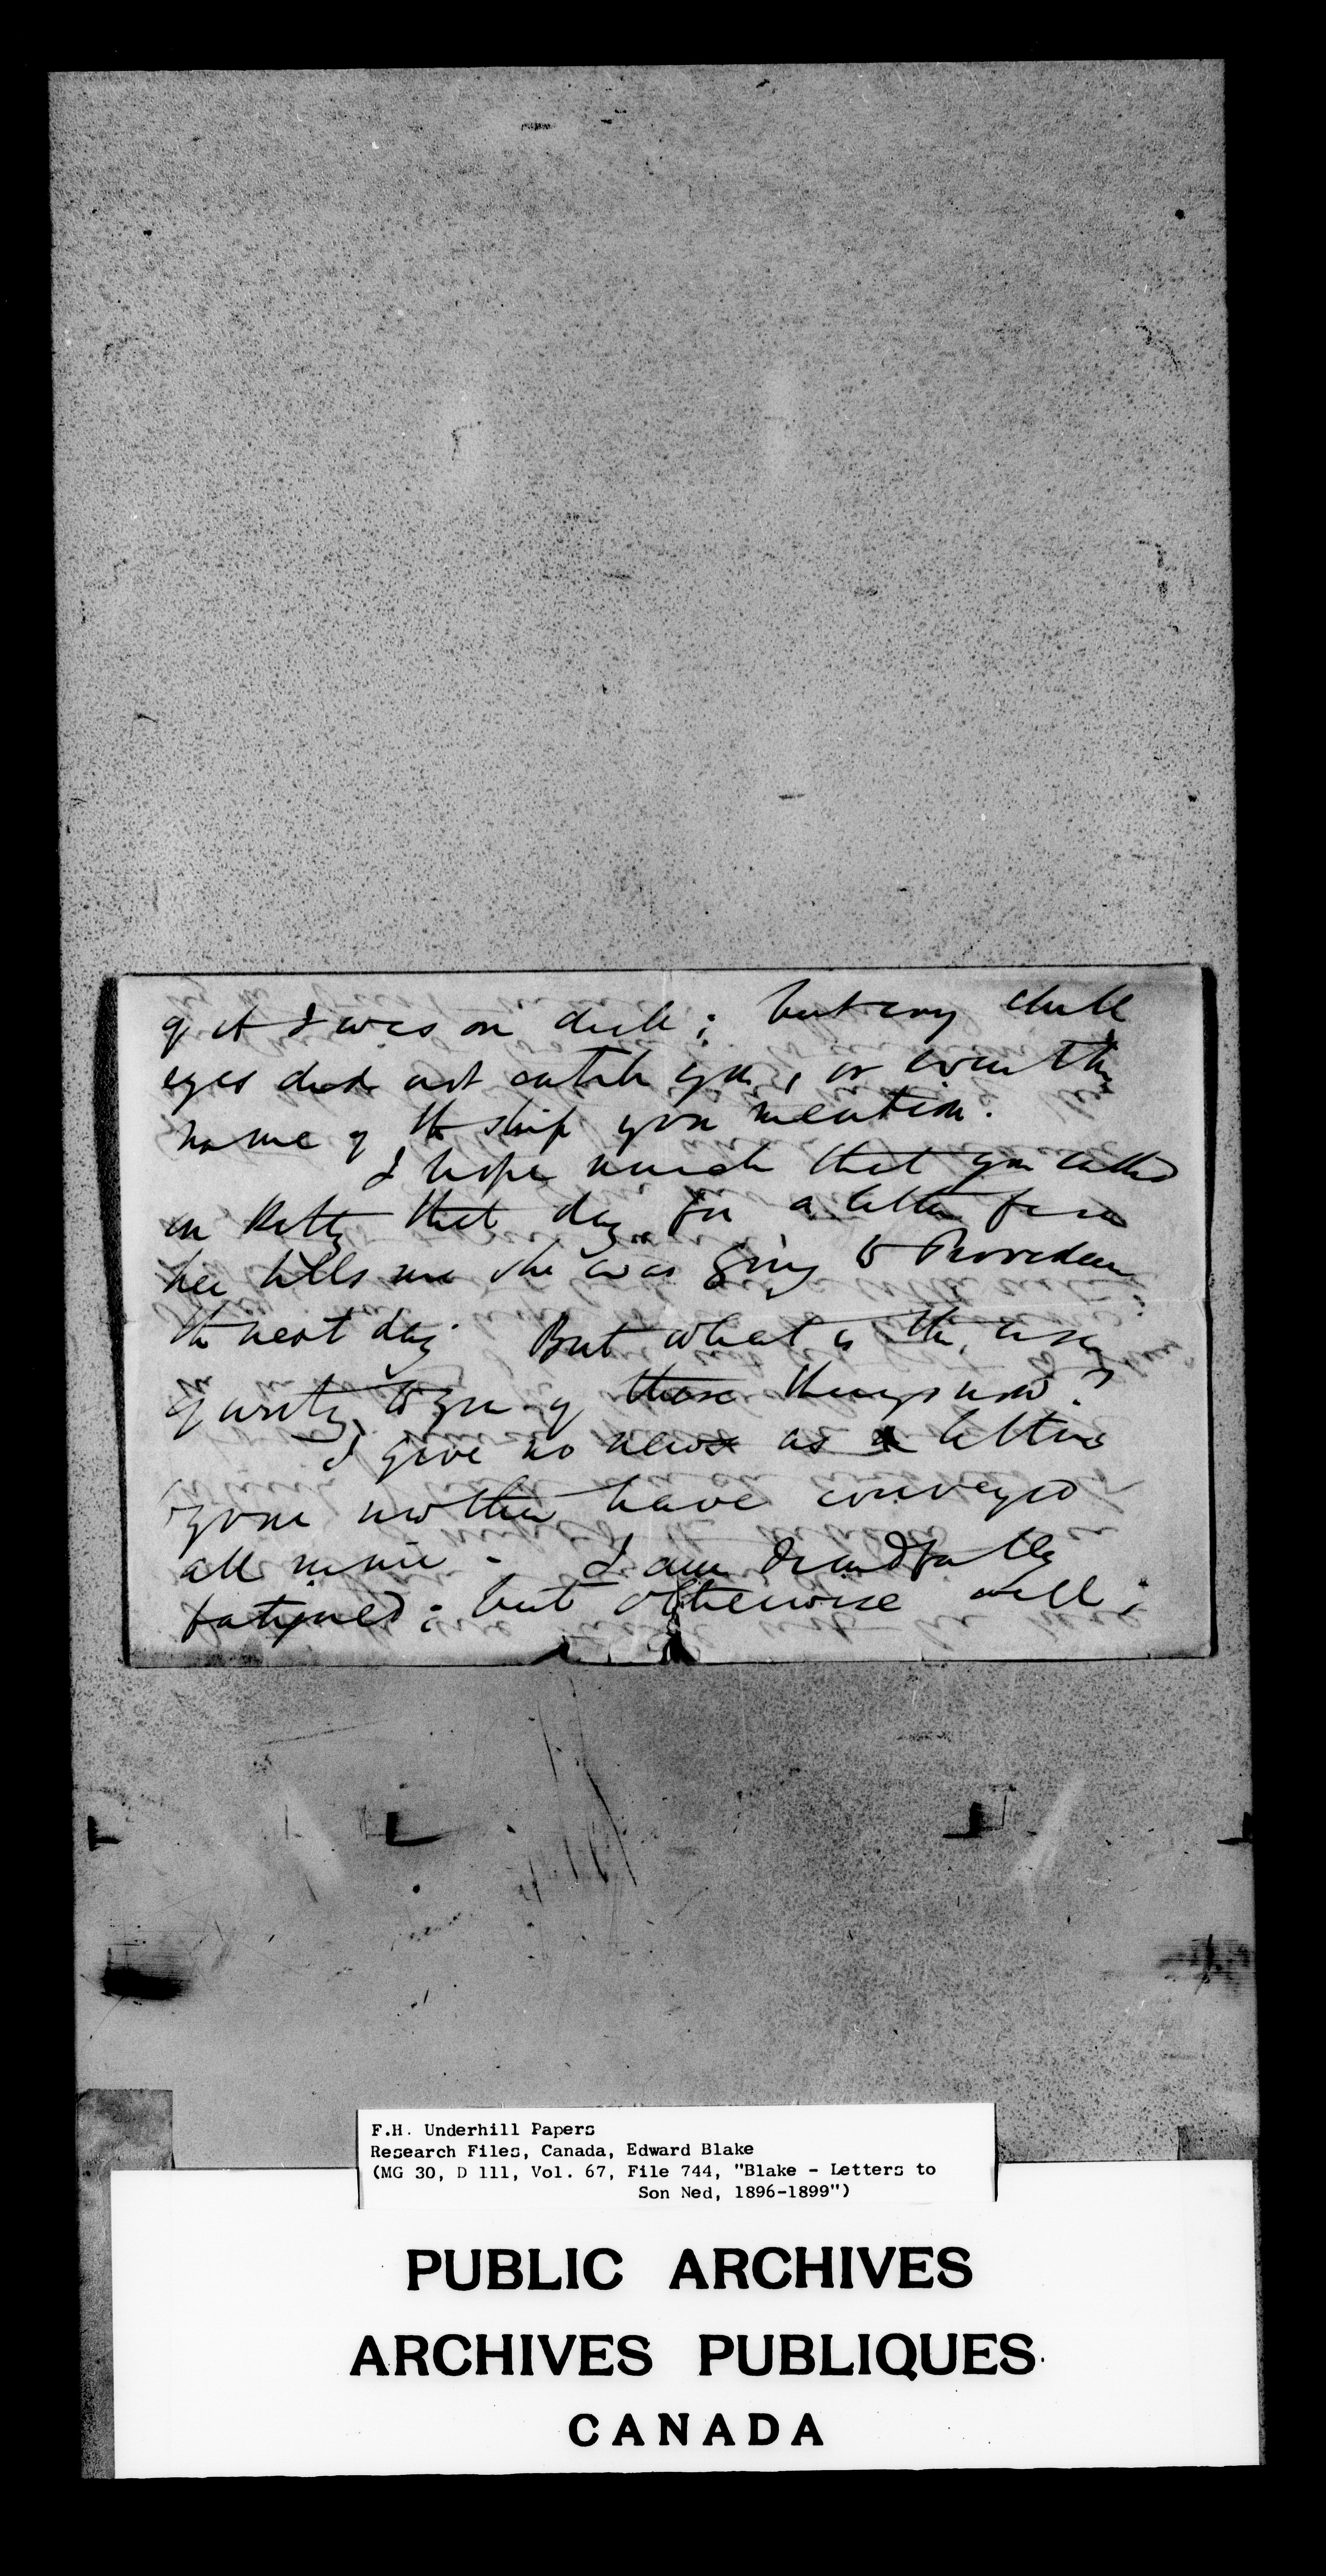 of it I was on deck; but my dull
eyes did not catch you, or even the
name of the ship you mention.
I hope much that you called
on Ketty that day for a letter from
her tells me she was going to Providence
the next day. But what is the use
of writing to you of these things now?
I give no news as letters
your mother have conveyed
all mine. I am dreadfully
fatigued; but otherwise well;
F.H. Underhill Papers
Research Files, Canada, Edward Blake
(MG 30, D 111, Vol. 67, File 744, "Blake - Letters to
Son Ned, 1896-1899")
PUBLIC ARCHIVES
ARCHIVES PUBLIQUES
CANADA